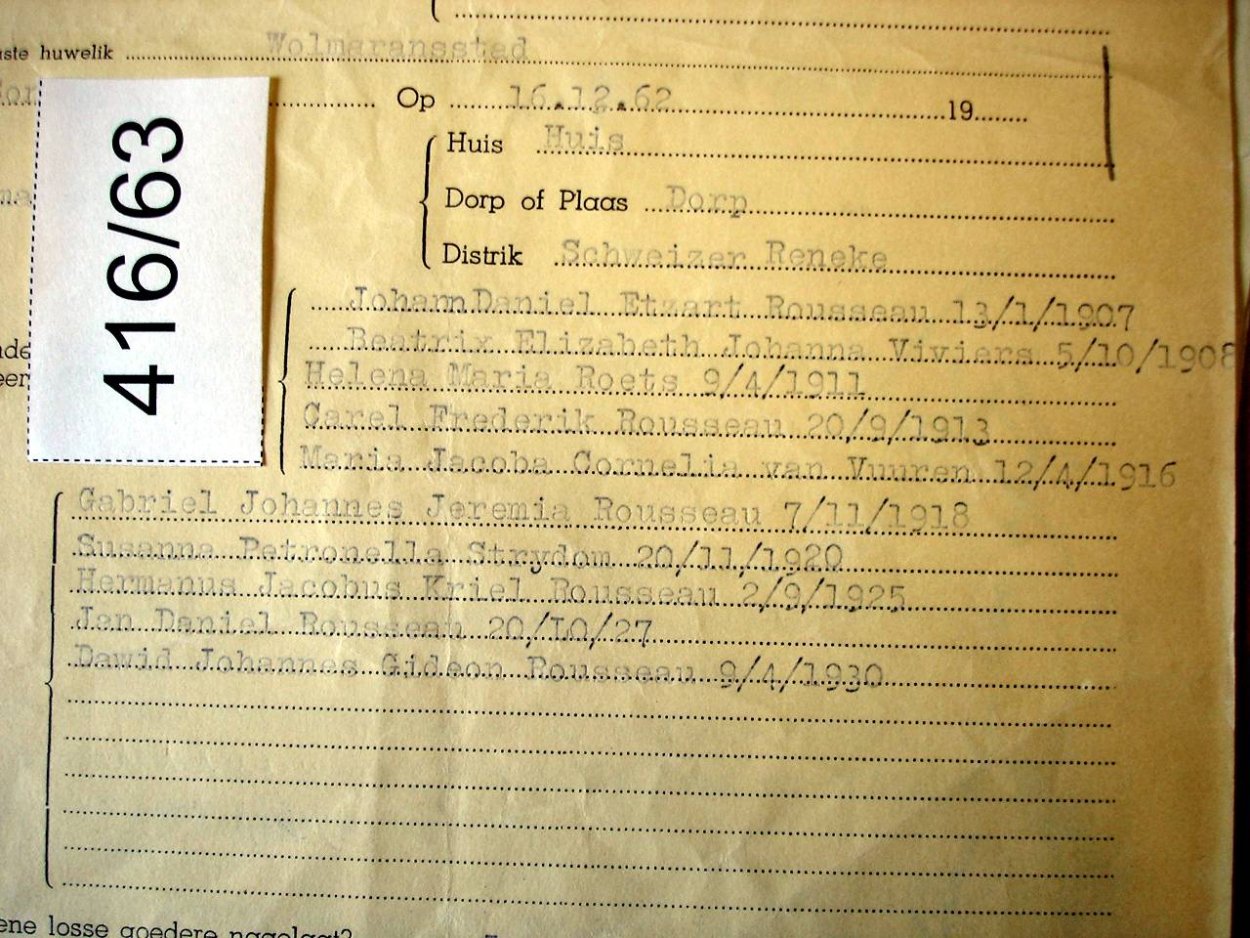 huwelik Wolmaransstad
Op 16.12.62 19
416/63
Huis Huis
Dorp of Plaas Dorp
Distrik Schweizer Reneke
Johann Daniel Etzart Rousseau 13/1/1907
Beatrix Elizabeth Johanna Viviers 5/10/1908
Helena Maria Roets 9/4/1911
Carel Frederik Rousseau 20/9/1913
Maria Jacoba Cornelia van Vuuren 12/4/1916
Gabriel Johannes Jeremia Rousseau 7/11/1918
Susanna Petronella Strydom 20/11/1920
Hermanus Jacobus Kriel Rousseau 2/9/1925
Jan Daniel Rousseau 20/IO/27
Dawid Johannes Gideon Rousseau 9/4/1930
losse goedere nagelaat?